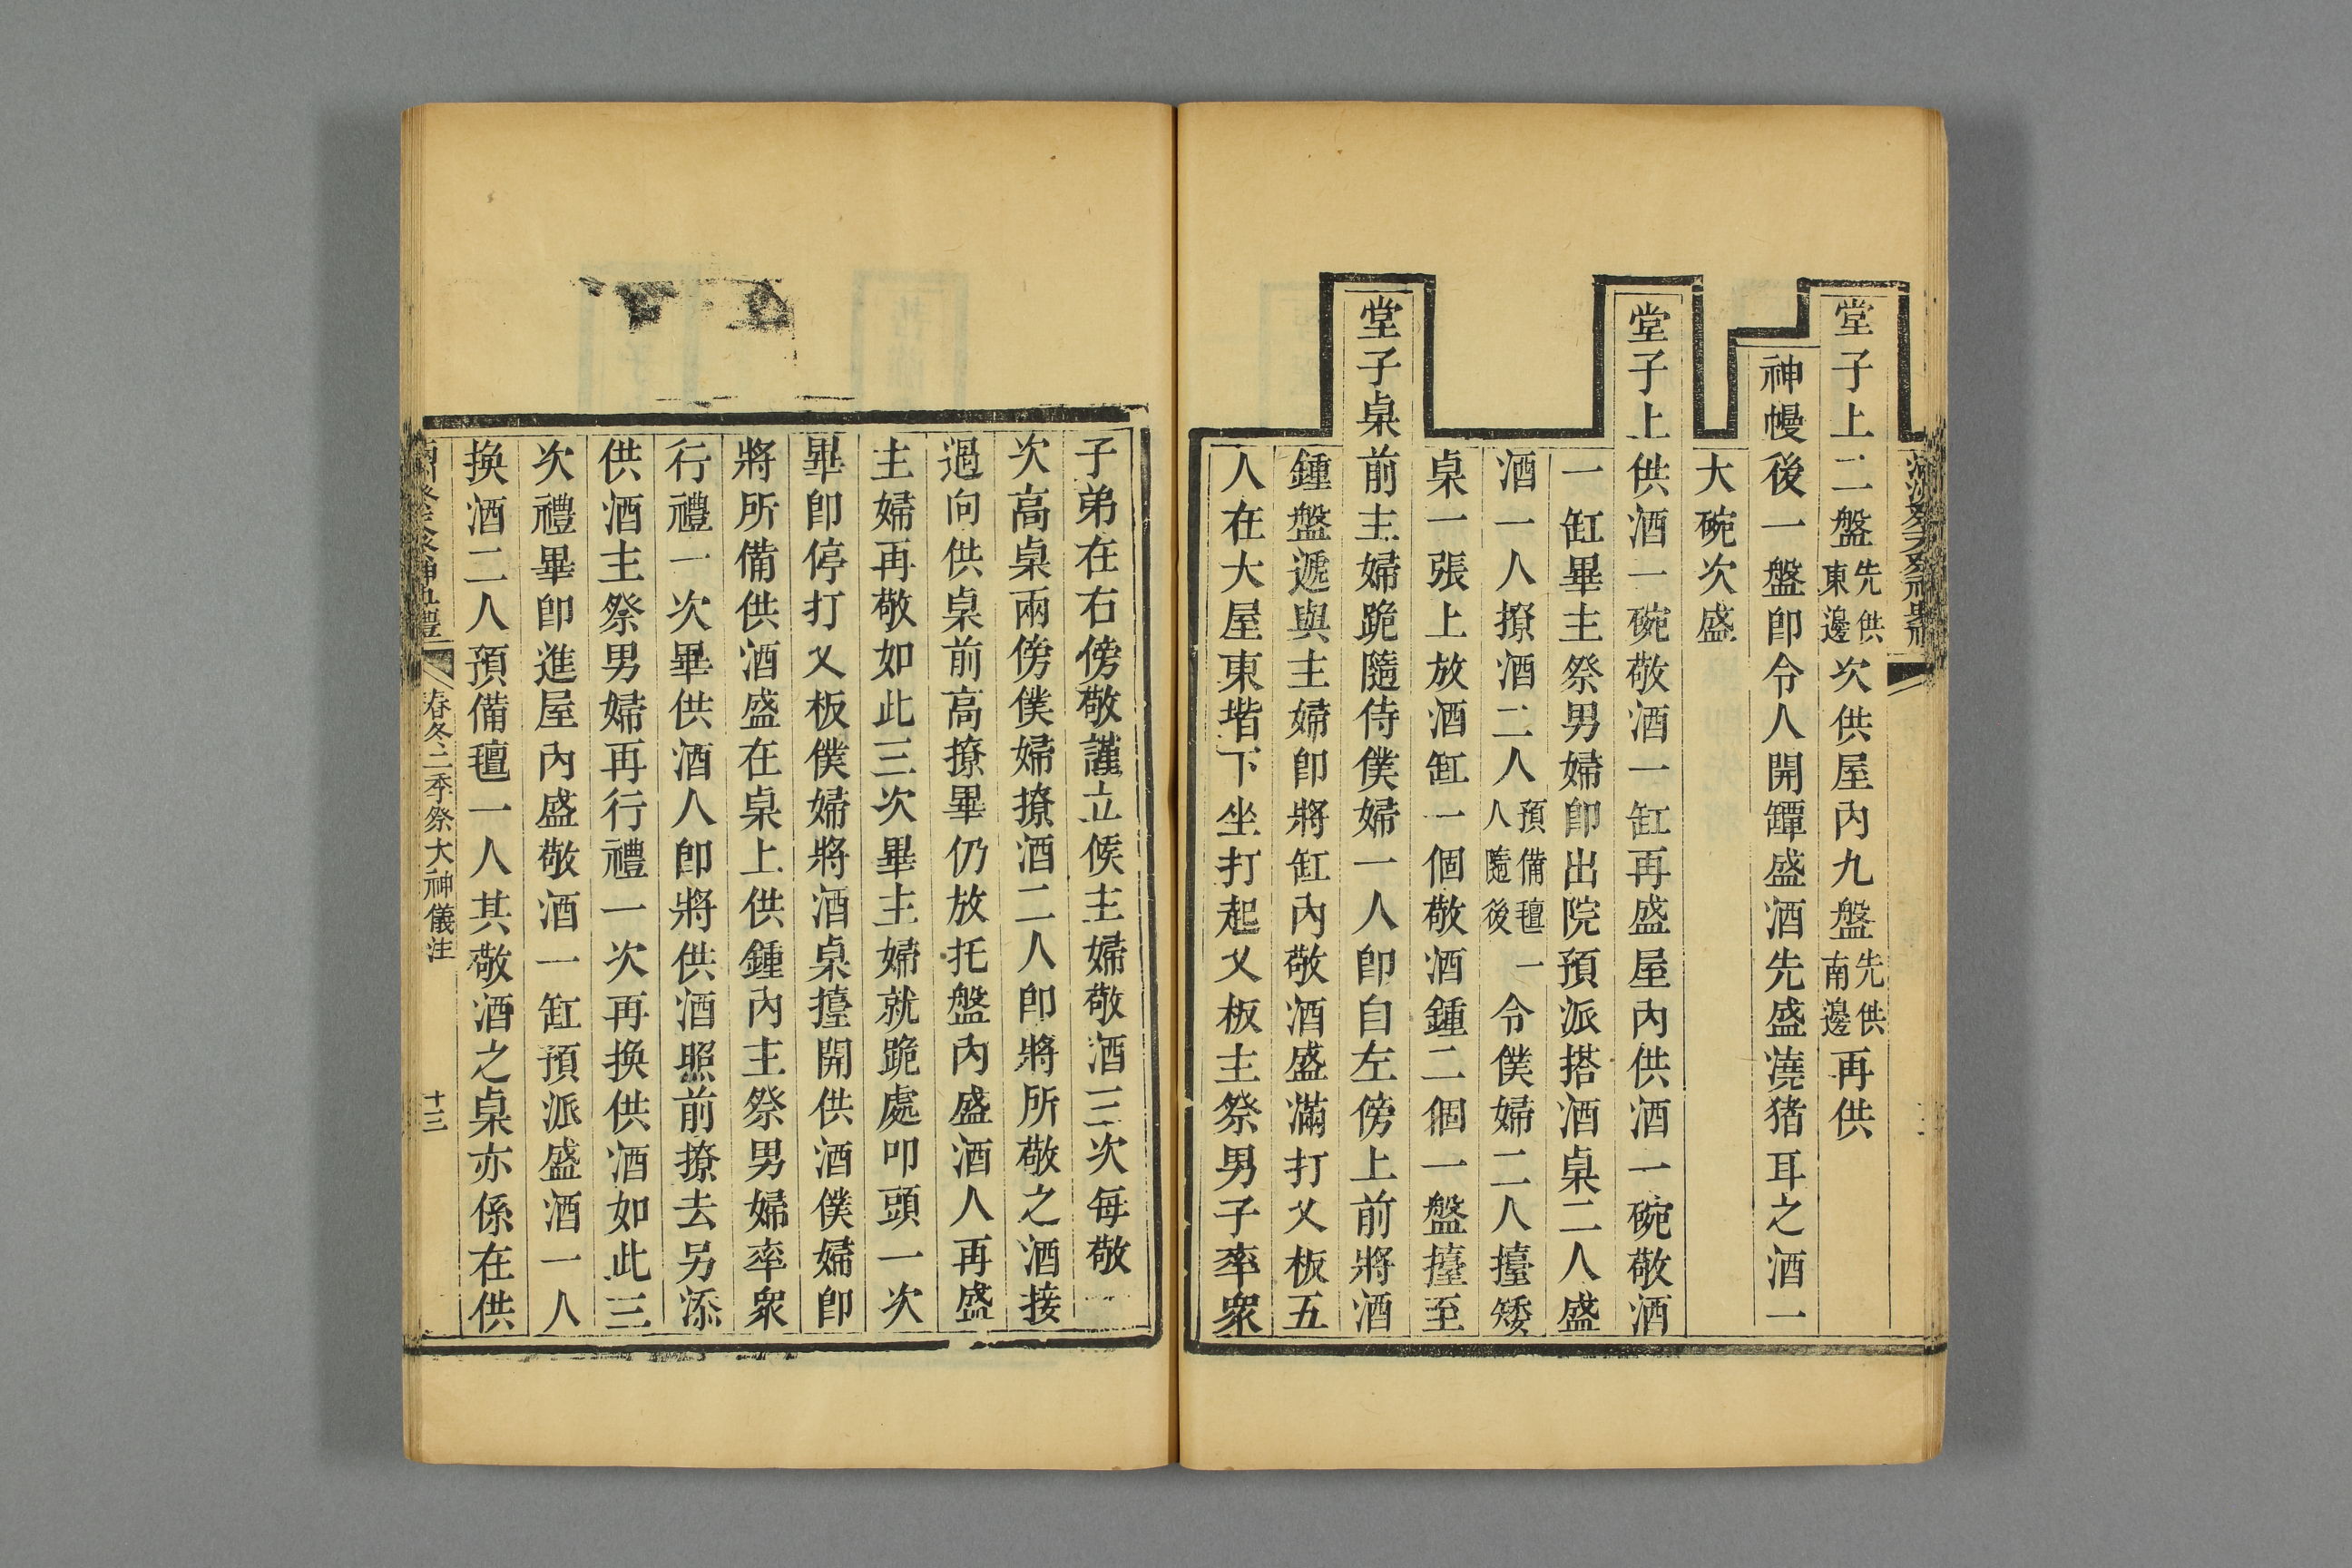 堂子上二盤先供東邊次供屋內九盤先供南邊再供
神幔後一盤卽令人開罈盛酒先盛澆猪耳之酒一
大碗次盛
堂子上供酒一碗敬酒一缸再盛屋內供酒一碗敬酒
一缸畢主祭男婦卽出院預派搭酒桌二人盛
酒一人撩酒二人預備氊一人隨後令僕婦二人擡矮
桌一張上放酒缸一個敬酒鍾二個一盤擡至
堂子桌前主婦跪隨侍僕婦一人卽自左傍上前將酒
鍾盤遞與主婦卽將缸內敬酒盛滿打义板五
人在大屋東堦下坐打起义板主祭男子率衆
子弟在右傍敬謹立候主婦敬酒三次每敬一
次高桌兩傍僕婦撩酒二人卽將所敬之酒接
過向供桌前高撩畢仍放托盤內盛酒人再盛
主婦再敬如此三次畢主婦就跪處叩頭一次
畢卽停打义板僕婦將酒桌擡開供酒僕婦卽
將所備供酒盛在桌上供鍾內主祭男婦率衆
行禮一次畢供酒人卽將供酒照前撩去另添
供酒主祭男婦再行禮一次再換供酒如此三
次禮畢卽進屋內盛敬酒一缸預派盛酒一人
換酒二人預備氊一人其敬酒之桌亦係在供
春冬二季祭大神儀注
十三